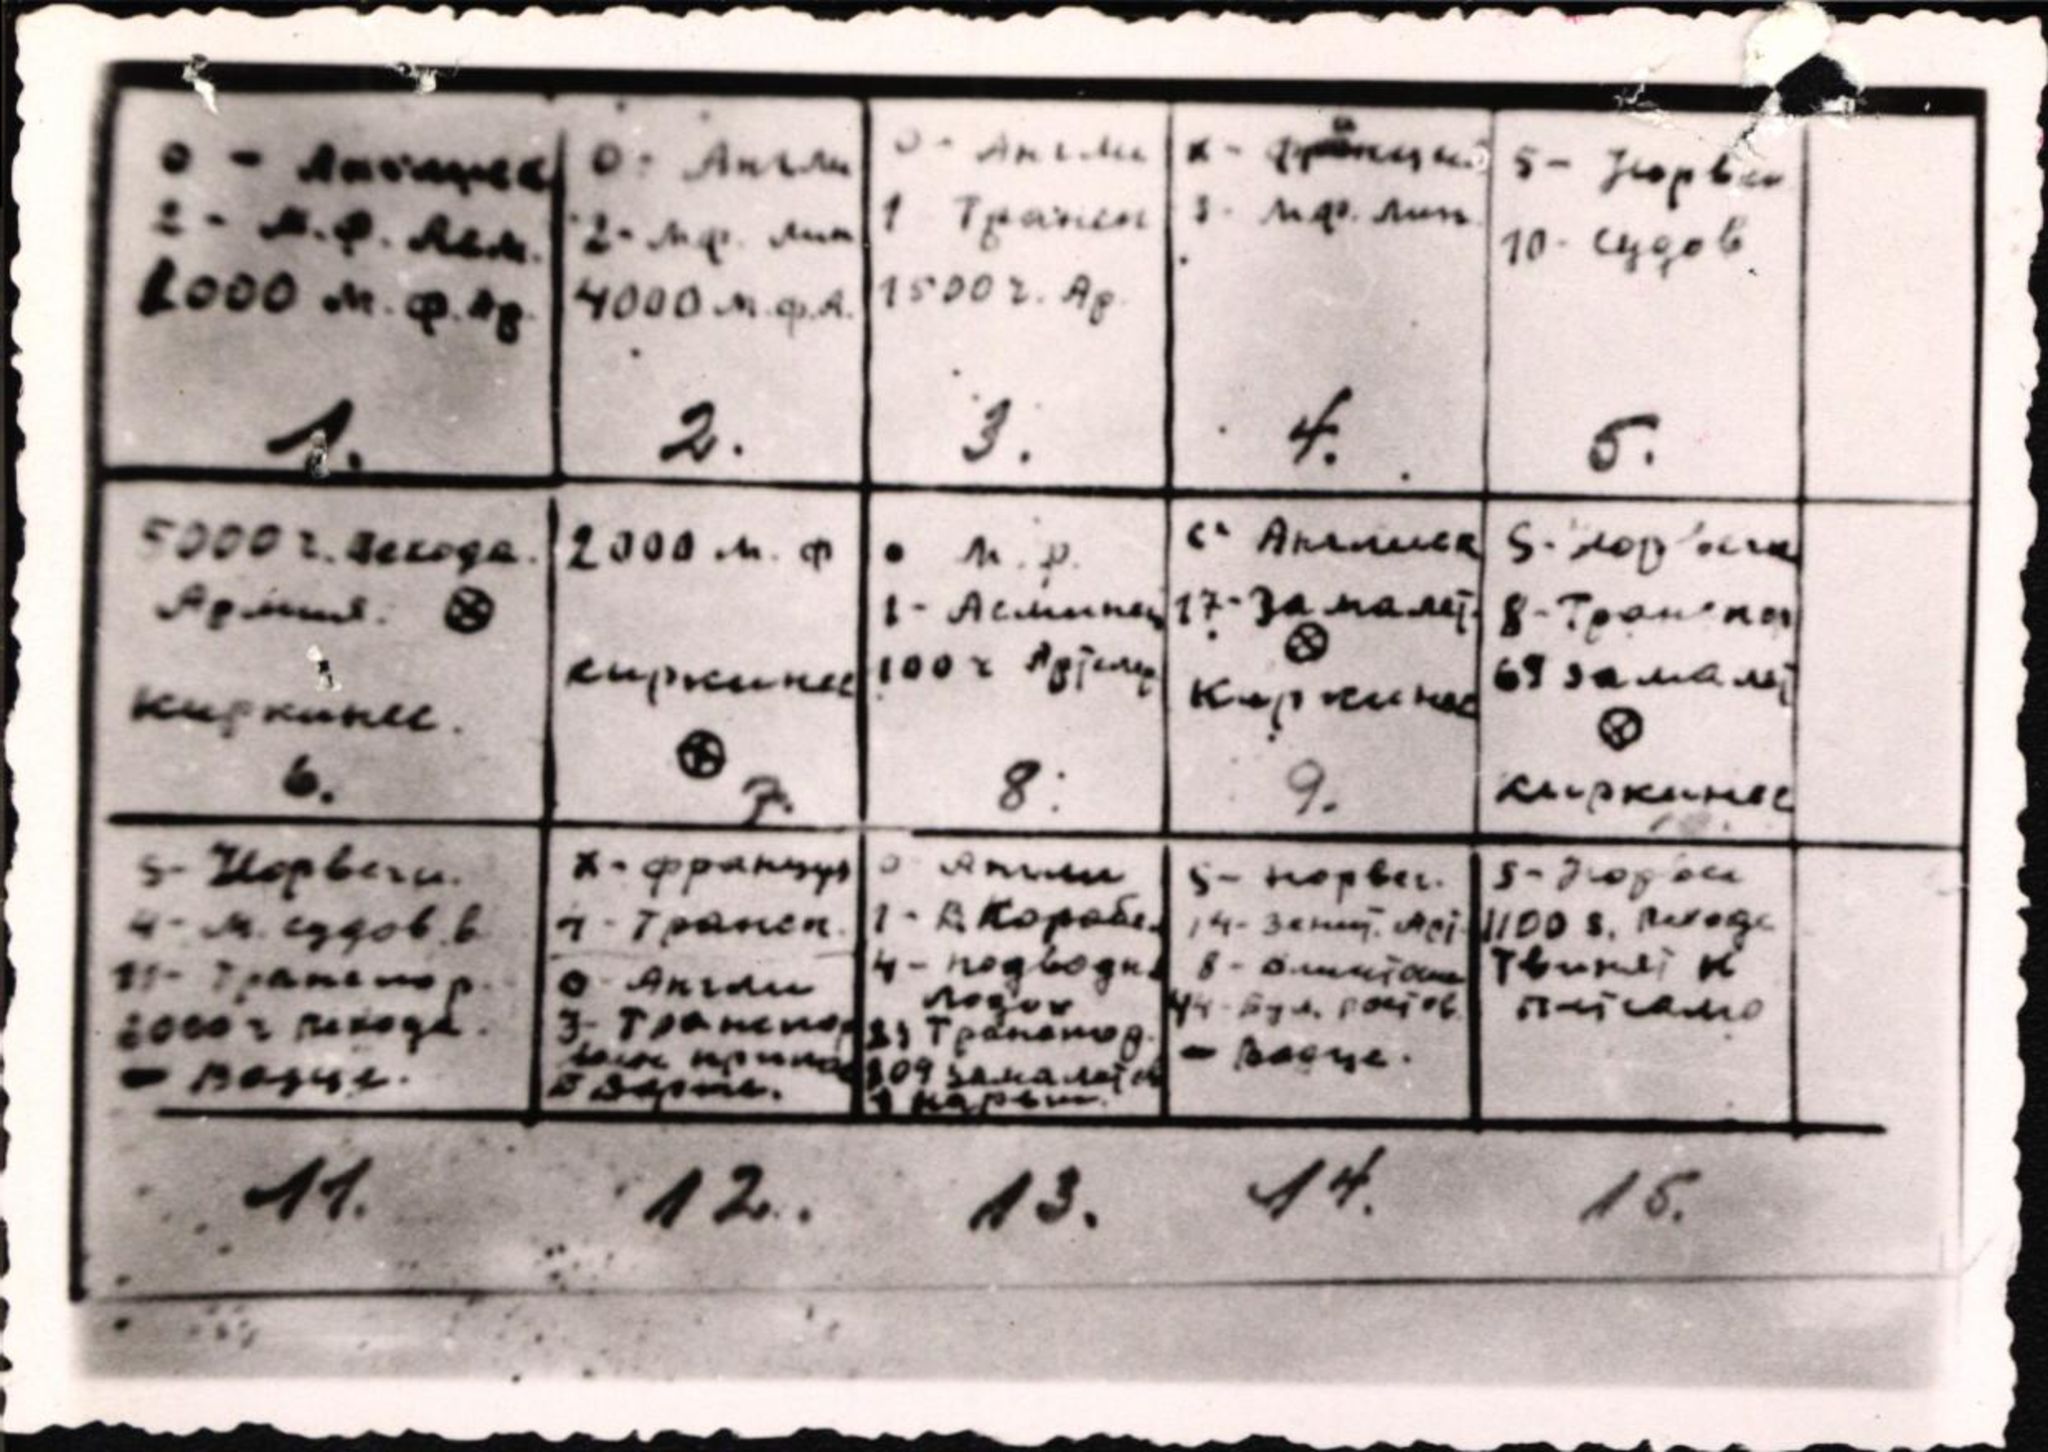 0 - Английск
2 - м.ф. Лем.
1000 м.ф. Ар.
1.
0 - Англи
2 - м.ф. лин
4000 м.ф.А.
2.
0 - Англи
1 Трансп
1500 ч. Ар.
3.
х - француй
3 - м.ф. лин.
4.
5 - Норвеи
10 - судов
5.
5000 ч. пехода.
Армия.
киркинес.
6.
2000 м.ф
киркинес
7.
м.р.
1 - Асминец
100 ч Артлер
8.
Английск
17 - Замалет.
Киркинес
9.
5 - Норвега
8 - Транспор
69 замалет
киркинес
5 - Норвеги.
4 - м. судов. в
11 - Транспор.
2000 ч пехода.
- Вадце.
11.
х - француз
1 - Трансп.
0 - Англи
3 - Транспор
12.
0 - Англи
1 - В. Корабе.
4 - подводн.
лодок
Транспор.
109 замалетов
13.
5 - норвег.
14 - зенит. Арт.
8 -
44 - пул.
- Вадце.
14.
5 - Норвеи
1100 s. пехода
Твинят к
петсамо
15.